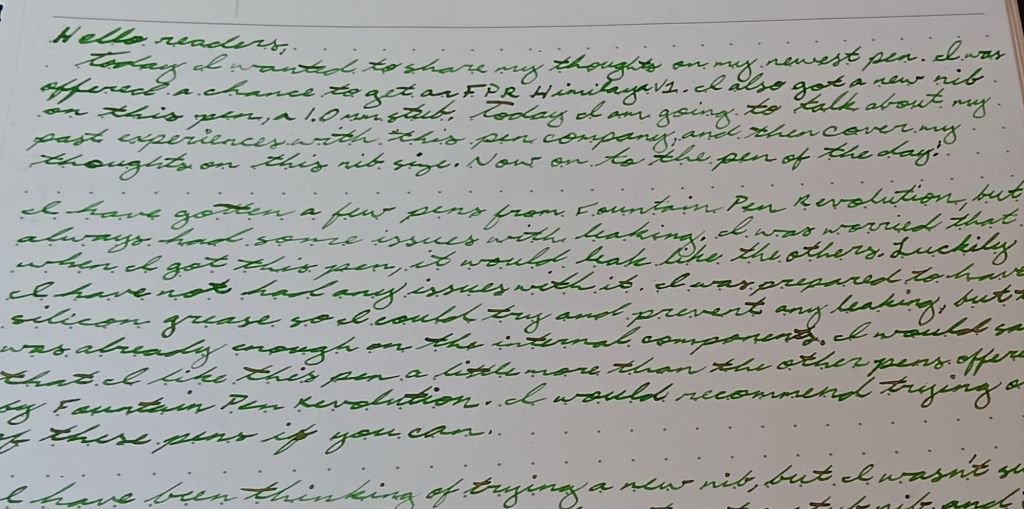 Hello readers,
Today I wanted to share my thoughts on my newest pen. I was
offered a chance to get an FPR Himilaya V1. I also got a new nib
on this pen, a 1.0 mm stub. Today I am going to talk about my
past experiences with this pen company, and then cover my
thoughts on this nib size. Now on to the pen of the day!
I have gotten a few pens from Fountain Pen Revolution, but
always had some issues with leaking. I was worried that
when I got this pen, it would leak like the others. Luckily
I have not had any issues with it. I was prepared to have
silicon grease so I could try and prevent any leaking, but
was already enough on the internal components. I would
that I like this pen a little more than the other pens
by Fountain Pen Revolution. I would recommend trying
of these pens if you can.
I have been thinking of trying a new nib, but I wasn't
nib, and